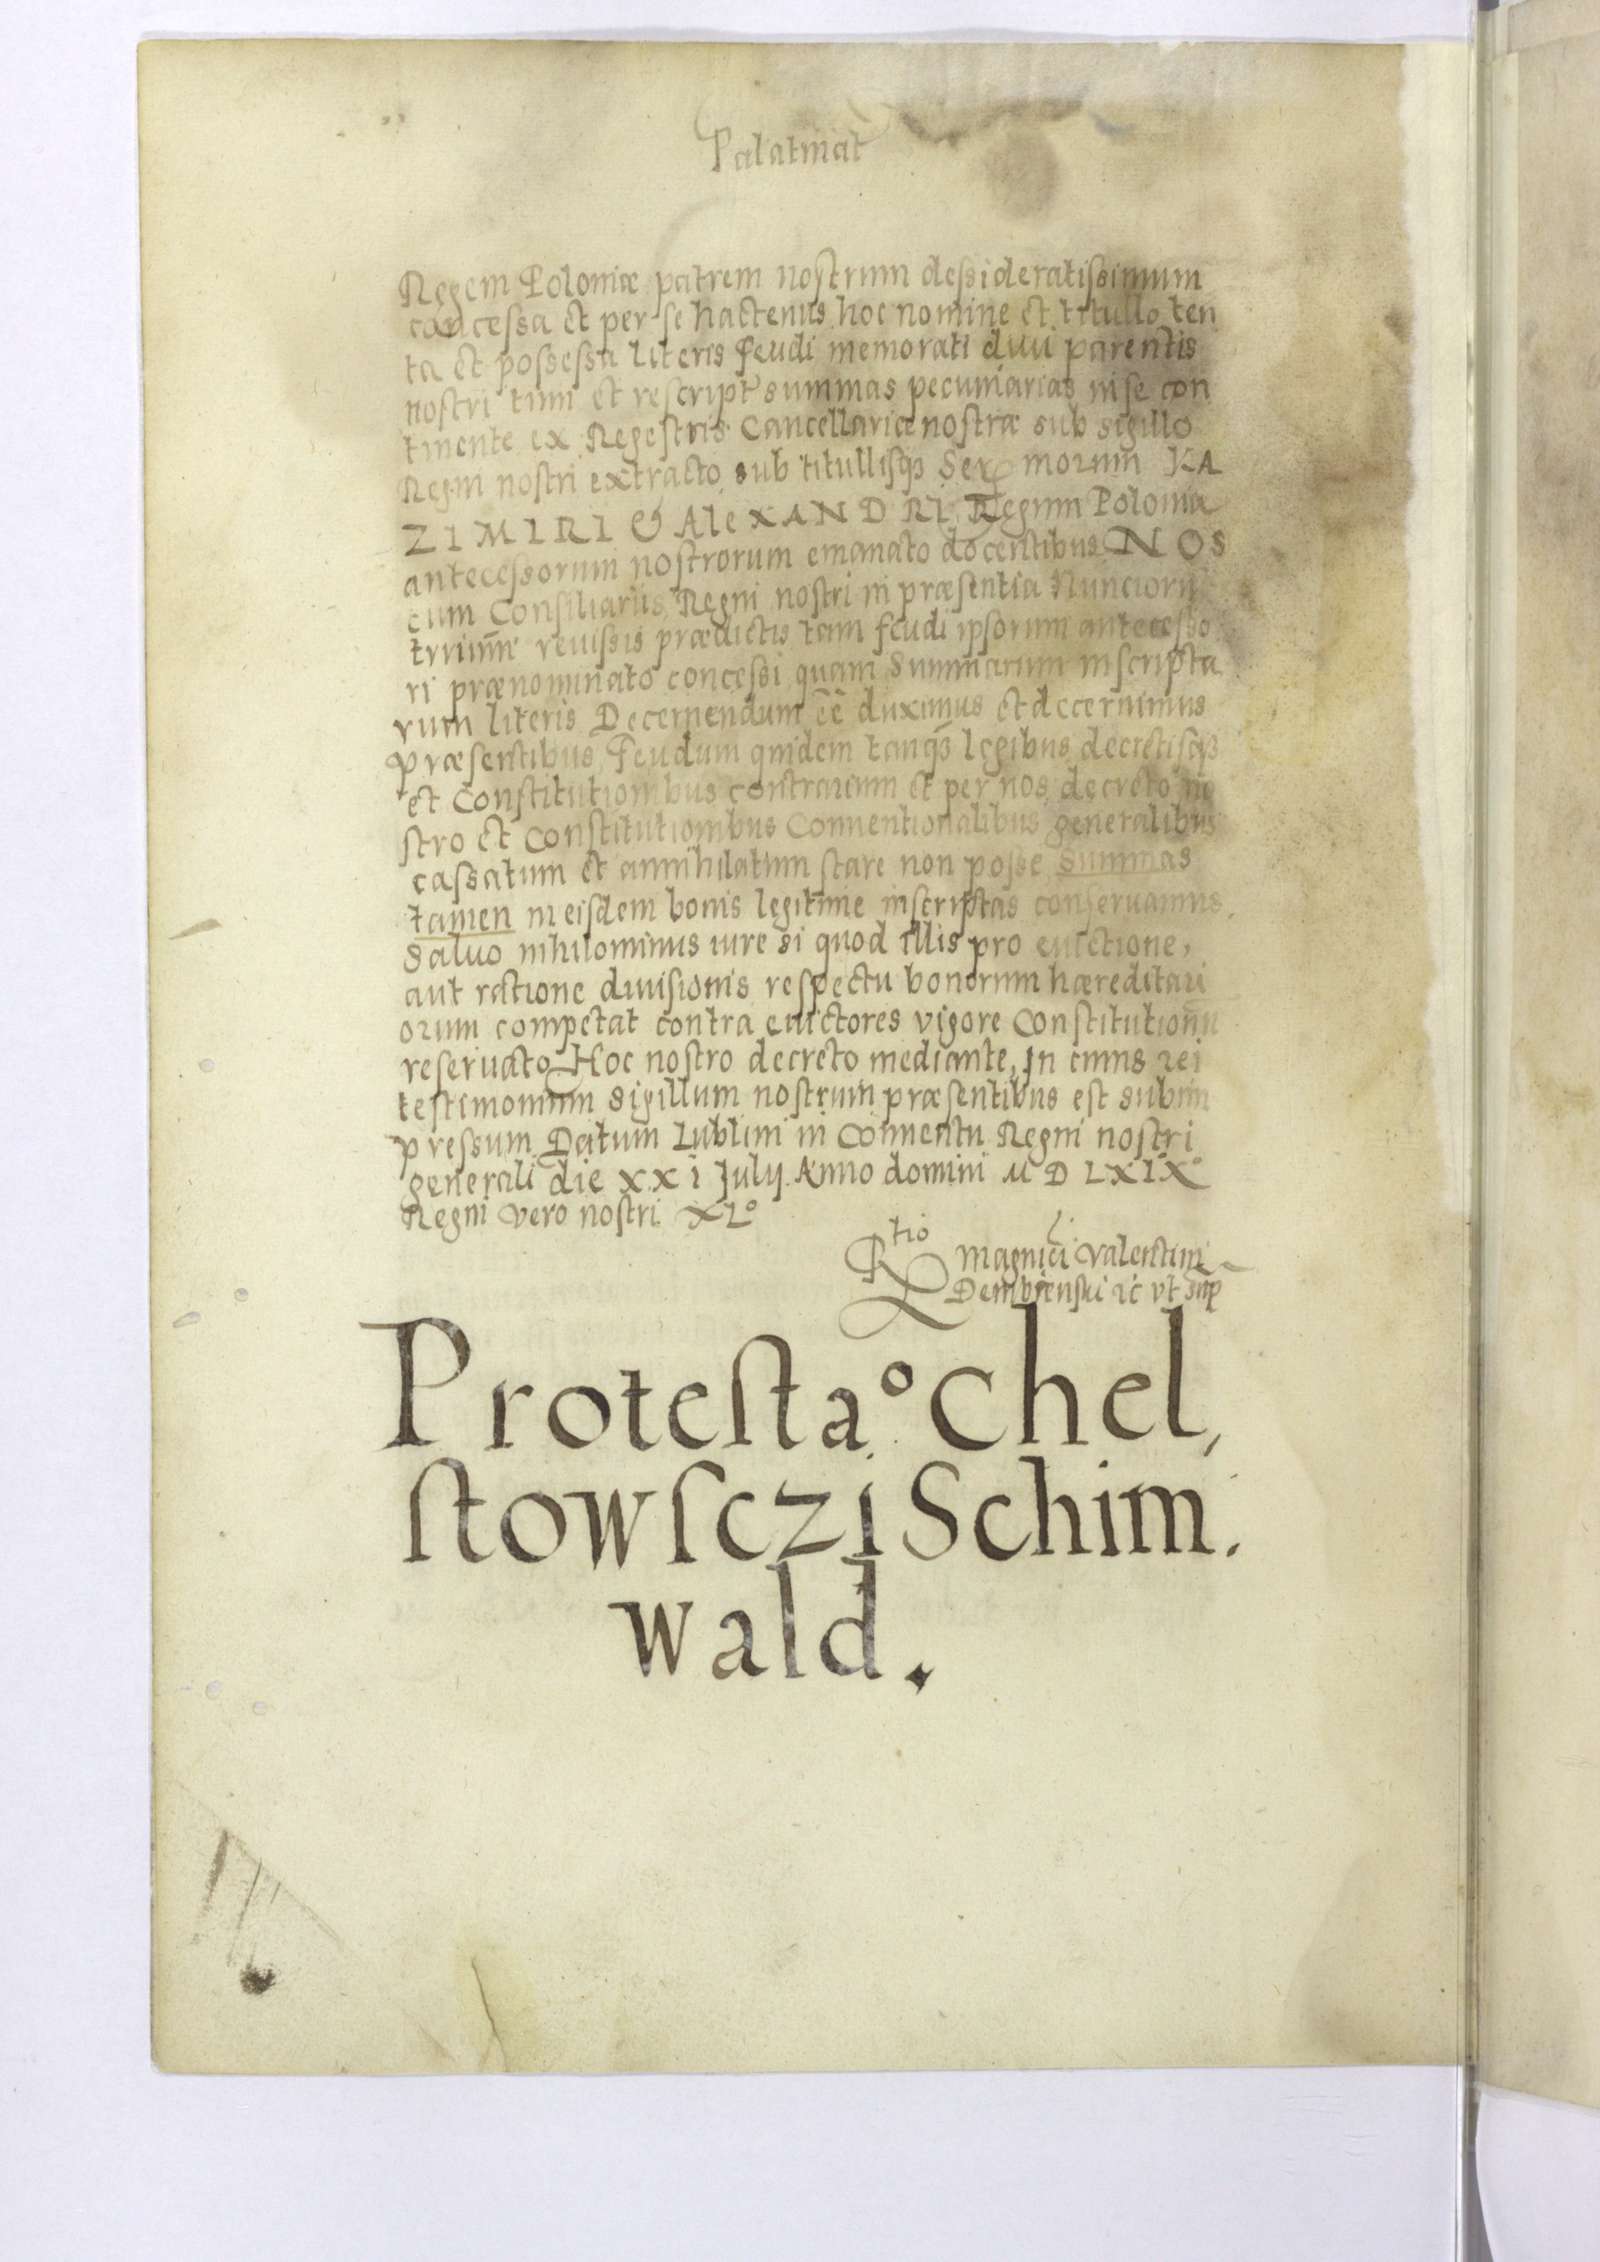 Palatinat
Regem Poloniæ patrem nostrum dessideratissimum
concessa et per se hactenus hoc nomine et titullo ten
ta et possessa literis Feudi memorati diui parentis
nostri tum et rescript summas pecuniarias in se con
tinente ex Regestris Cancellariæ nostræ sub sigillo
Regni nostri extracto sub titullisq3 Ser morum KA
ZIMIRI & AleXANDRI Regum Poloniæ
antecessorum nostrorum emanato docentibus NOS
cum Consiliariis Regni nostri in præsentia Nuncioru
trium reuissis prædictis tam feudi ipsorum antecesso
ri prænominato concessi quam Summarum inscripta
rum literis Decernendum eē duximus et decernimus
præsentibus Feudum quidem tanq3 legibus decretisq3
et Constitutionibus contrarium et per nos decreto no
stro et Constitutionibus Conuentionalibus generalibus
cassatum et annihilatum stare non posse Summas
tamen in eisdem bonis legitime inscriptas conseruamus
Saluo nihilominus iure si quod illis pro euictione,
aut ratione diuisionis respectu bonorum hæreditari
orum competat contra euictores vigore Constitutionu
reseruato Hoc nostro decreto mediante, In cuius rei
testimonium sigillum nostrum præsentibus est subim
pressum Datum Lublini in Conuentu Regni nostri
generali die XXI July Anno domini MDLXIXº
Regni vero nostri XLº
Rtio Magnici Valentini
Dembienski ac vt sup
Protestaº Chel,
stowsczi Schim.
wald.